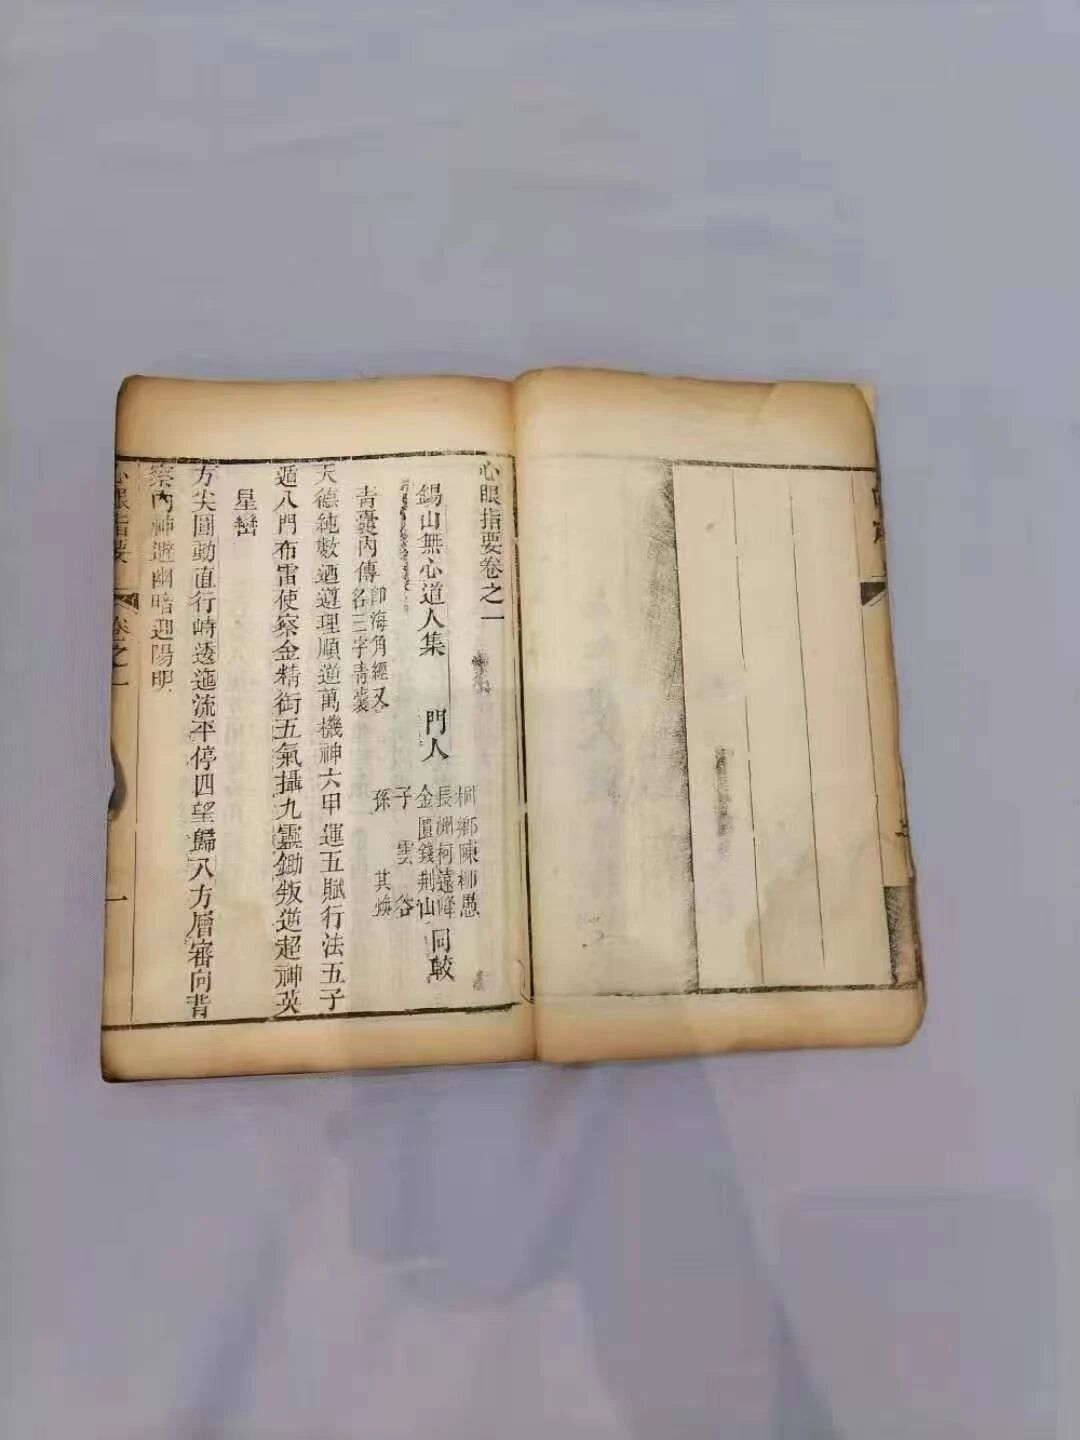 心眼指要卷之一
錫山無心道人集
門人
桐鄉陳柳愚
長洲柯遠峰
金匱錢荆山
子雲谷
孫其煥
同較
青囊內傳
卽海角經又
名三字青囊
天德純數迺遵理順道萬機神六甲運五賦行法五子
遁八門布雷使察金精銜五氣攝九靈鋤叛逆超神英
星巒
方尖圓動直行峙透迤流平停四望歸八方層審向背
察內神避幽暗迎陽明
心眼指要
卷之一
一